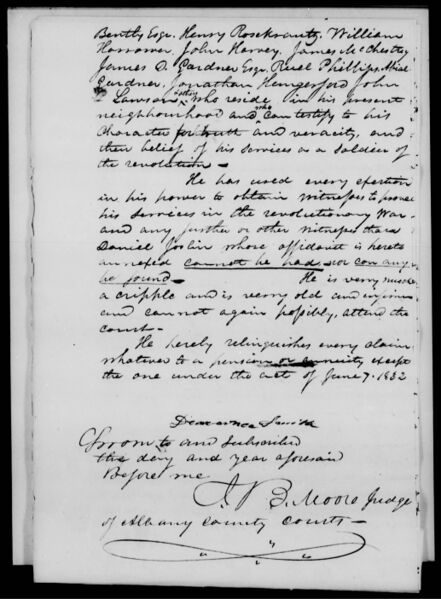 Bently Esqr. Henry Rosekrantz, William
Harrower, John Harvey, James McChesney
James D. Gardner Esqr. Ruel Phillips, Abial
Gardner, Jonathan Hungerford John
Lawson & others who reside in his present
neighbourhood and who can testify to his
character for truth and veracity, and
their belief of his services as a soldier of
the revolution —
He has used every exertion
in his power to obtain witnesses to prove
his services in the revolutionary War
and any further or other witness than
Daniel Joslin whose affidavit is hereto
annexed cannot be had nor can any
be found — He is verry much
a cripple and is verry old and infirm
and cannot again possibly, attend the
court —
He hereby relinquishes every claim
whatever to a pension or annuity except
the one under the act of June 7. 1832
Smith
Sworn to and subscribed
the day and year aforesaid
Before me
J. B. Moore Judge
of Albany County Courts —